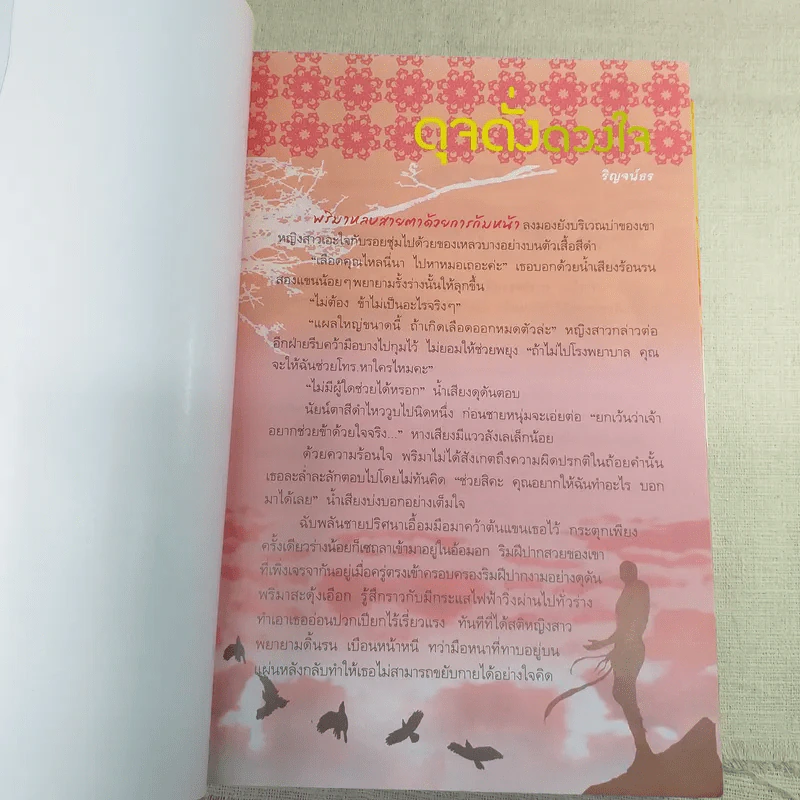 ดุจดั่งดวงใจ
ริญจน์ธร
พริมาหลบสายตาด้วยการก้มหน้า ลงมองยังบริเวณบ่าของเขา
หญิงสาวเอะใจกับรอยชุ่มไปด้วยของเหลวบางอย่างบนตัวเสื้อสีดำ
“เลือดคุณไหลนี่นา ไปหาหมอเถอะค่ะ” เธอบอกด้วยน้ำเสียงร้อนรน
สองแขนน้อยๆพยายามรั้งร่างนั้นให้ลุกขึ้น
“ไม่ต้อง ข้าไม่เป็นอะไรจริงๆ”
“แผลใหญ่ขนาดนี้ ถ้าเกิดเลือดออกหมดตัวล่ะ” หญิงสาวกล่าวต่อ
อีกฝ่ายรีบคว้ามือบางไปกุมไว้ ไม่ยอมให้ช่วยพยุง “ถ้าไม่ไปโรงพยาบาล คุณ
จะให้ฉันช่วยโทร.หาใครไหมคะ”
“ไม่มีผู้ใดช่วยได้หรอก” น้ำเสียงดุดันตอบ
นัยน์ตาสีดำไหววูบไปนิดหนึ่ง ก่อนชายหนุ่มจะเอ่ยต่อ “ยกเว้นว่าเจ้า
อยากช่วยข้าด้วยใจจริง...” หางเสียงมีแววลังเลเล็กน้อย
ด้วยความร้อนใจ พริมาไม่ได้สังเกตถึงความผิดปรกติในถ้อยคำนั้น
เธอละล่ำละลักตอบไปโดยไม่ทันคิด “ช่วยสิคะ คุณอยากให้ฉันทำอะไร บอก
มาได้เลย” น้ำเสียงบ่งบอกอย่างเต็มใจ
ฉับพลันชายปริศนาเอื้อมมือมาคว้าต้นแขนเธอไว้ กระตุกเพียง
ครั้งเดียวร่างน้อยก็เซถลาเข้ามาอยู่ในอ้อมอก ริมฝีปากสวยของเขา
ที่เพิ่งเจรจากันอยู่เมื่อครู่ตรงเข้าครอบครองริมฝีปากงามอย่างดุดัน
พริมาสะดุ้งเฮือก รู้สึกราวกับมีกระแสไฟฟ้าวิ่งผ่านไปทั่วร่าง
ทำเอาเธออ่อนปวกเปียกไร้เรี่ยวแรง ทันทีที่ได้สติหญิงสาว
พยายามดิ้นรน เบือนหน้าหนี ทว่ามือหนาที่ทาบอยู่บน
แผ่นหลังกลับทำให้เธอไม่สามารถขยับกายได้อย่างใจคิด